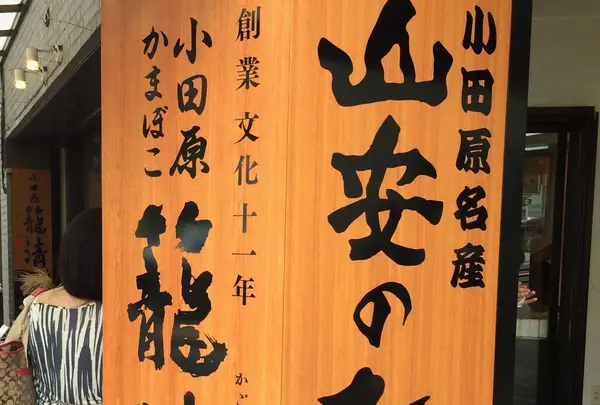 小田原名産
山安の
創業 文化十一年
小田原
かまぼこ
籠
かご
小田原
籠清